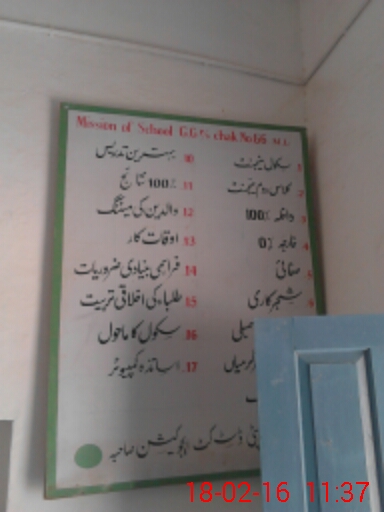 Mission of School G.G.P/S chak No.66 M.L
1 سکول مینجمنٹ
2 کلاس روم مینجمنٹ
3 داخلہ 100%
4 خارجہ 0%
5 صفائی
6 شجرکاری
10 بہترین تدریس
11 100% نتائج
12 والدین کی میٹنگ
13 اوقات کار
14 فراہمی بنیادی ضروریات
15 طلباء کی اخلاقی تربیت
16 سکول کا ماحول
17 اساتذہ کمپیوٹر
ڈسٹرکٹ ایجوکیشن صاحبہ
18-02-16 11:37